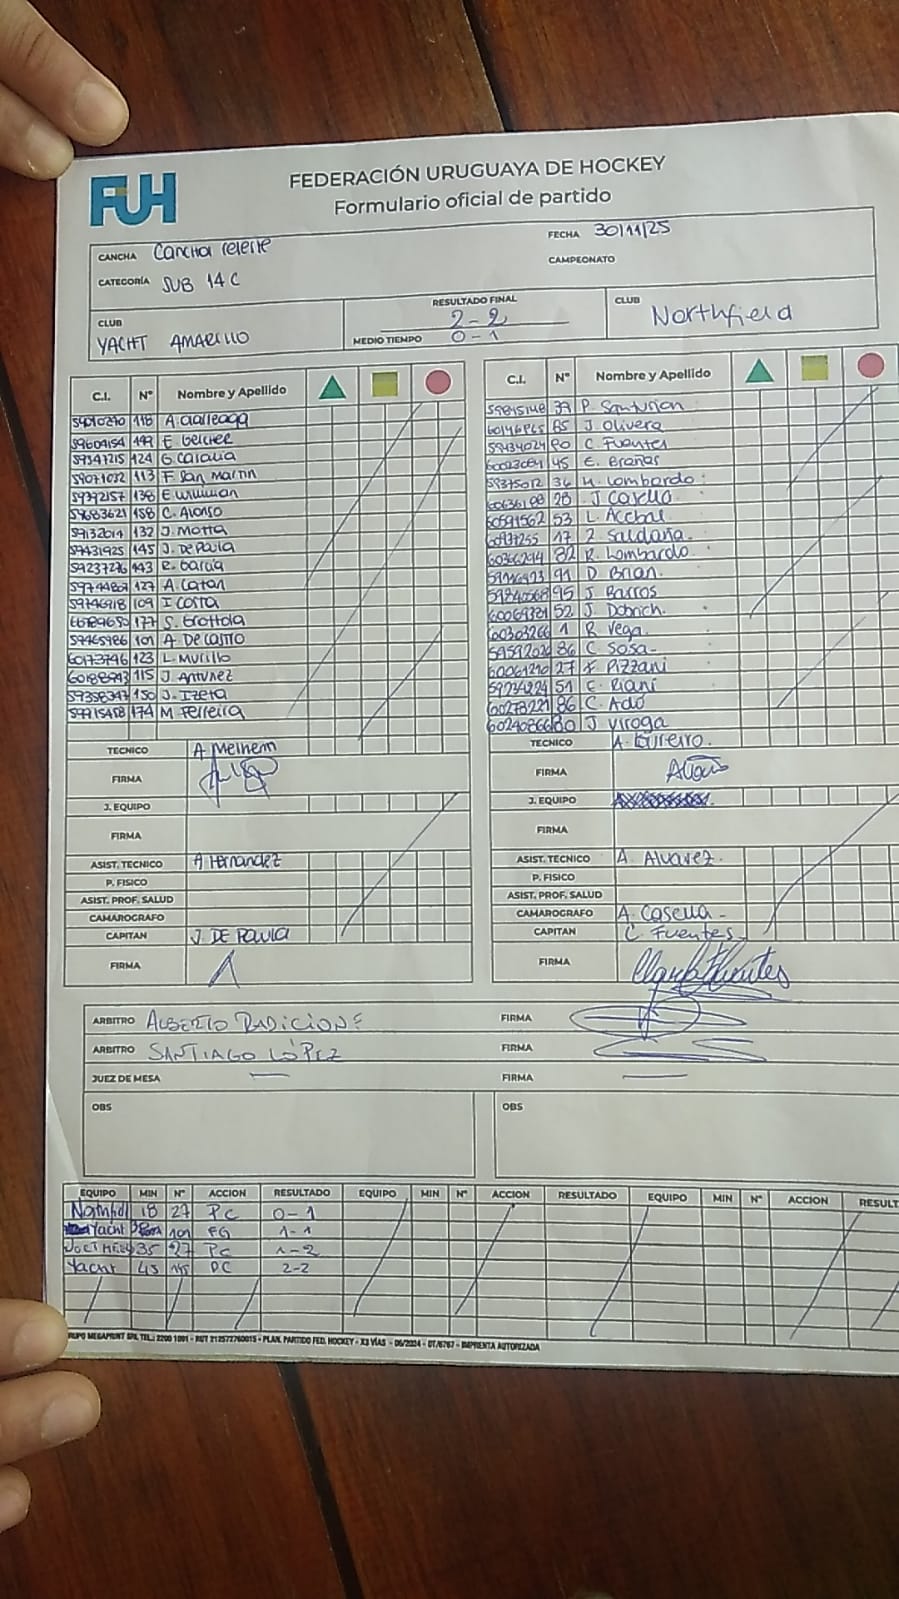 FUH
FEDERACIÓN URUGUAYA DE HOCKEY
Formulario oficial de partido
CANCHA Cancha celeste
FECHA 30/11/25
CATEGORÍA SUB 14 C
CAMPEONATO
CLUB
YACHT AMARILLO
RESULTADO FINAL
2-2
MEDIO TIEMPO 0-1
CLUB
Northfield
C.I. N° Nombre y Apellido
118 A.
59604154 149 E Belcher
59541215 124 G
59071032 113 F San Martin
59392157 138 E
59683621 188 C. Alonso
59132014 132 J. Motta
59431925 145 J. DE Paula
59237276 143 R. Garcia
127 A. Catan
59746918 109 I costa
177 S. Grottola
59465986 101 A. De castro
60173746 123 L. Murillo
115 J. Antunez
59358347 150 J. Izeta
59715458 174 M Ferreira
TECNICO A Melhem
FIRMA
J. EQUIPO
FIRMA
ASIST. TECNICO A Hernandez
P. FISICO
ASIST. PROF. SALUD
CAMAROGRAFO
CAPITAN J. DE PAULA
FIRMA
C.I. N° Nombre y Apellido
59845148 39 P. Santurion
85 J. Olivera
59434024 C. Fuentes
45 E. Brañas
59375012 36 M. Lombardo
28 J Casella
60591562 53 L.
17 Z. Saldaña
82 R. Lombardo
91 D Brian.
95 J Barros
52 J. Dobrich.
60303266 1 R Vega.
86 C Sosa-
27 Pizzani
51 C. Riani
60278221 86 C.
J Viroga
TECNICO
FIRMA
J. EQUIPO
FIRMA
ASIST. TECNICO A. Alvarez.
P. FISICO
ASIST. PROF. SALUD
CAMAROGRAFO A. Casella -
CAPITAN C. Fuentes.
FIRMA
ARBITRO ALBERTO RADICIONE FIRMA
ARBITRO SANTIAGO LÓPEZ FIRMA
JUEZ DE MESA — FIRMA —
OBS
OBS
EQUIPO MIN N° ACCION RESULTADO EQUIPO MIN N° ACCION RESULTADO EQUIPO MIN N° ACCION RESULT
18 27 PC 0-1
Yacht 101 FG 1-1
35 27 PC 1-2
Yacht 45 115 PC 2-2
RUPO MEGAPRINT SRL TEL.: 2200 1001 - RUT 212572760015 - PLAN. PARTIDO FED. HOCKEY - X3 VÍAS - 06/2024 - 07/6767 - IMPRENTA AUTORIZADA